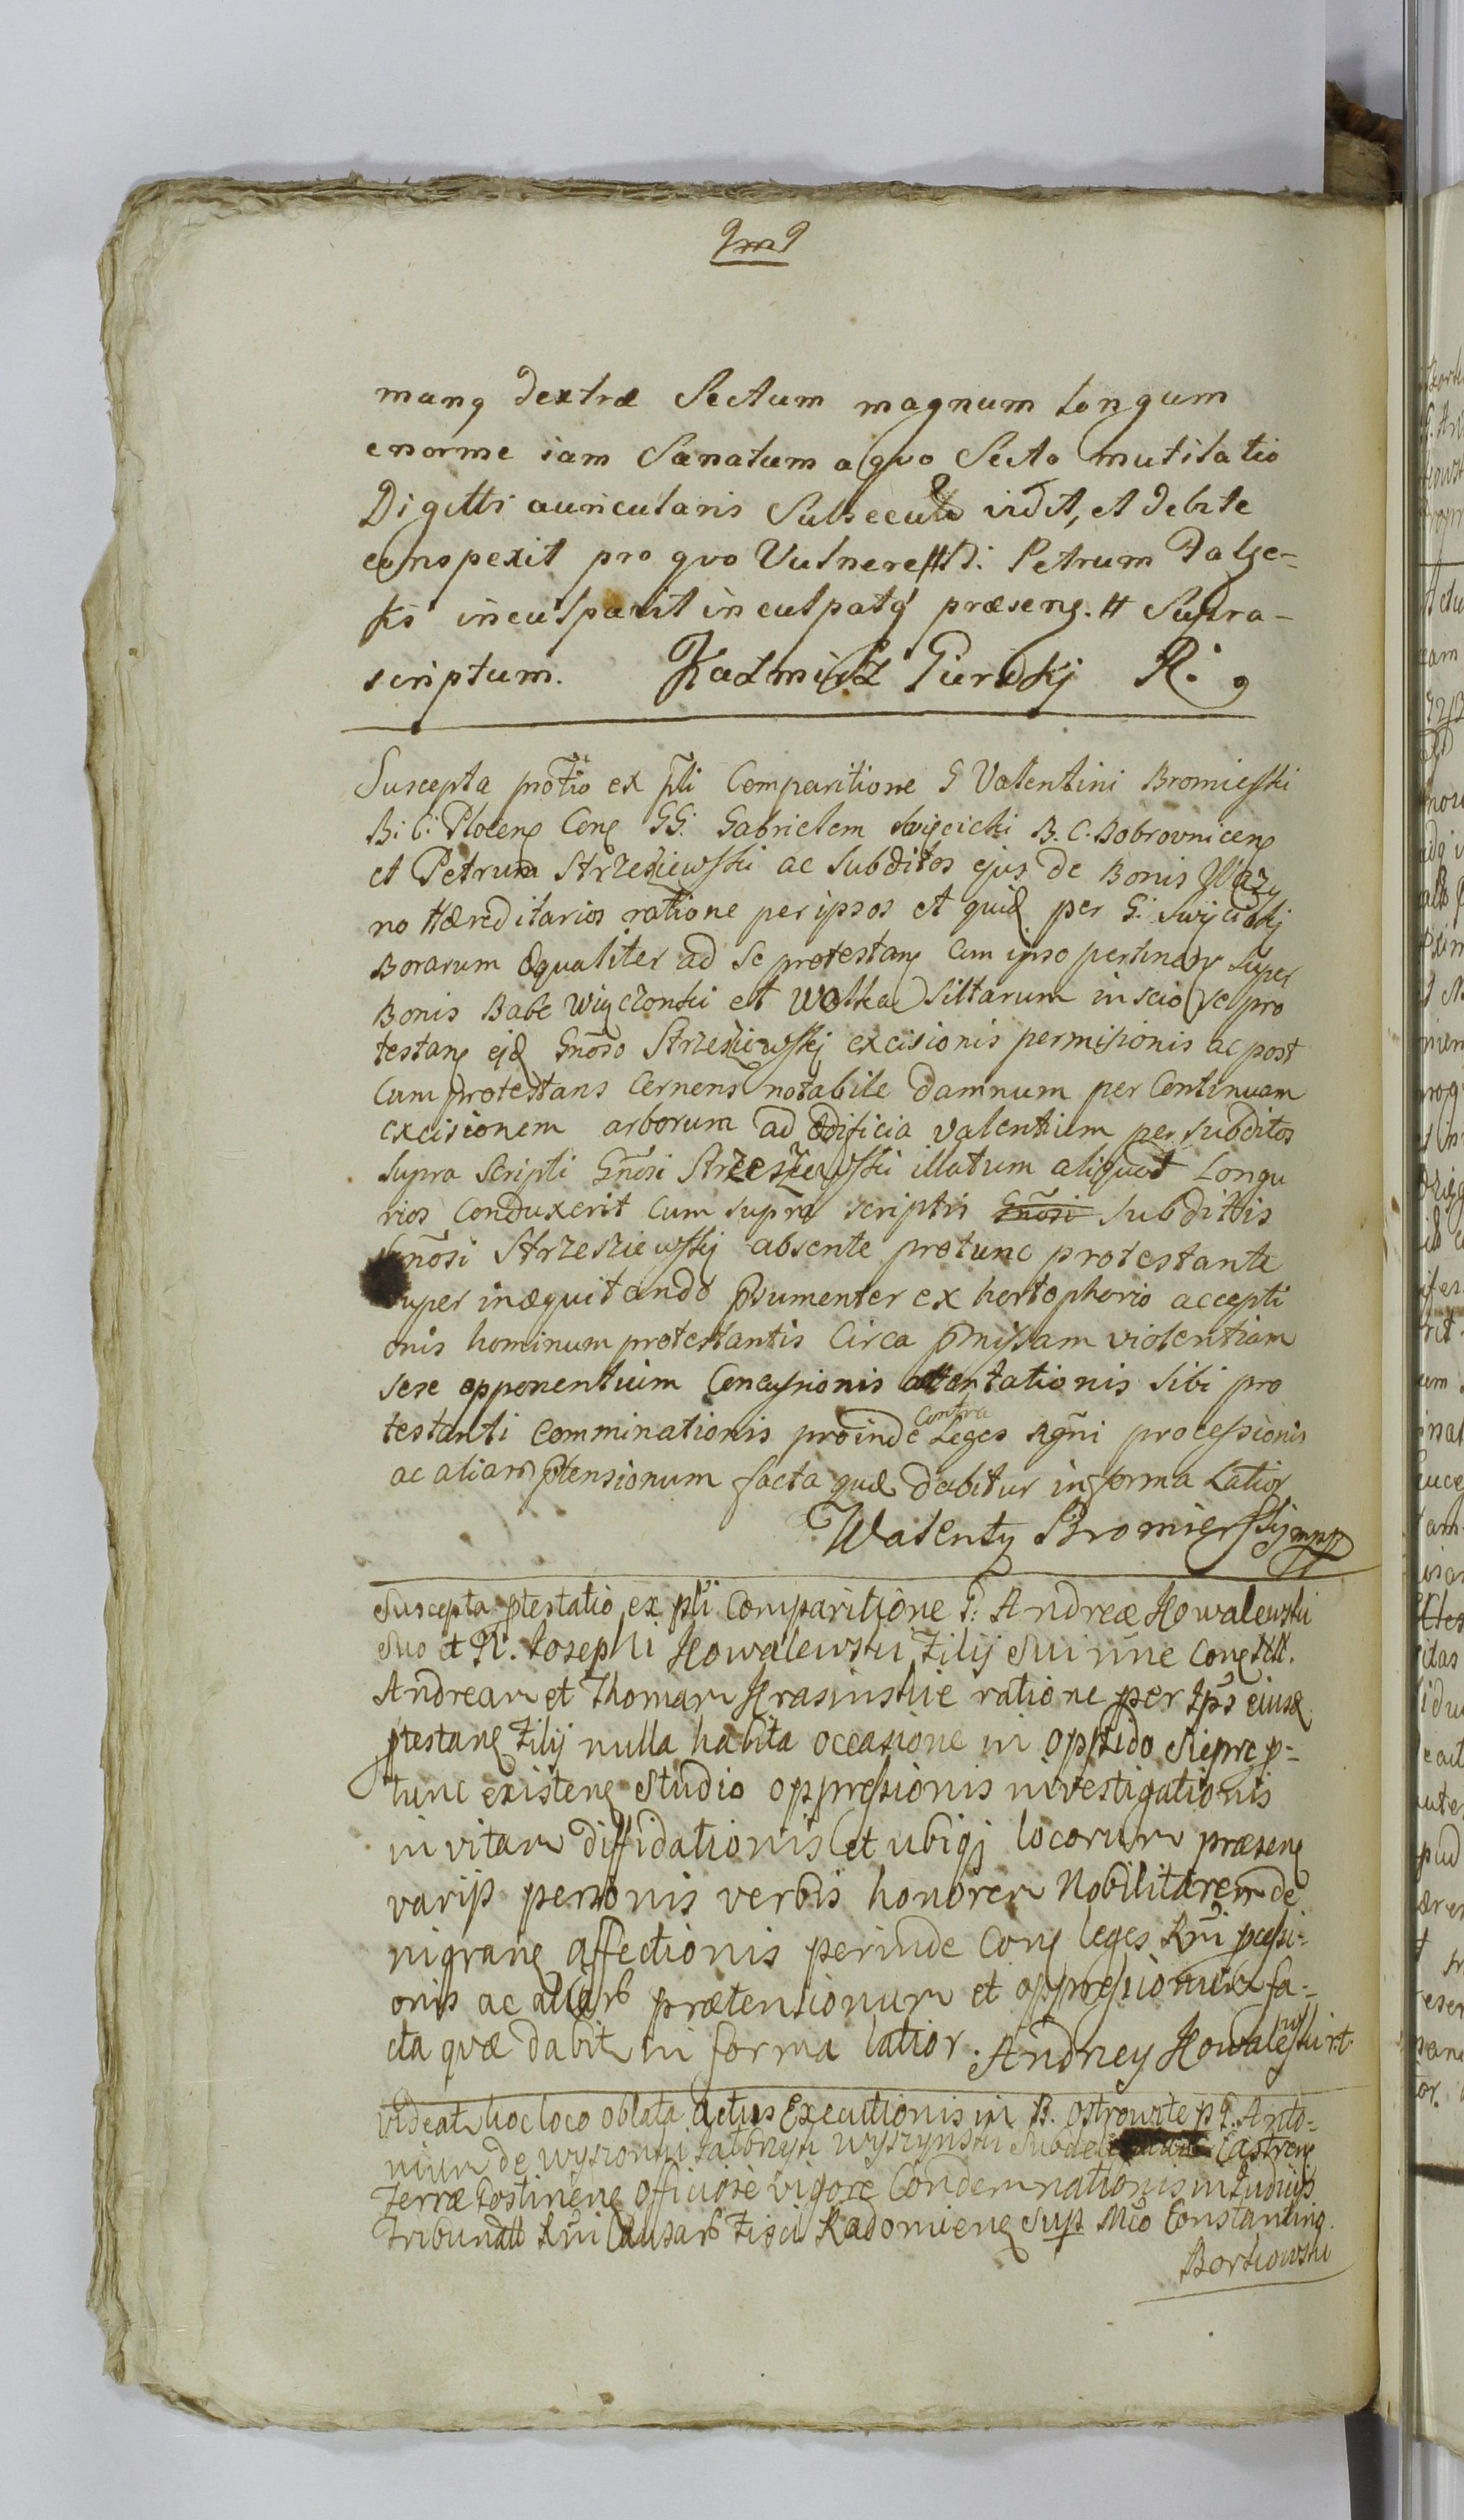 manq dextræ Sectum magnum Longum
enorme iam Sanatum a quo Secto mutilatio
Digitti auricularis Subsecuta vidit, et debite
conspexit pro quo Vulnere H D: Petrum
inculpavit inculpatq præseng. H Supra-
scriptum. Kazmirz R.
Suscepta protio ex pti Comparitione G Valentini Bromieski
B: C: Ploceng Cong GG: Gabrielem Swięcicki B. C. Bobrovniceng
et Petrum Strzesziewski ac Subditos ejus de Bonis Wazy
no Hæreditarios ratione per ipsos et quid per G:
Borarum Æqualiter ad Se protestang Cum ipso pertineng Super
Bonis Babe Więczonki et Wolka Siltarum inscio se pro
testang ejd Gnoso Strzesziewskj excisionis permisionis ac post
Cum protestans Cernens notabile Damnum per Continuam
excisionem arborum ad Ædificia valentium per Subditos
Supra Scripti Gnosi Strzesziewski illatum aliquot Longu
rios Conduxerit Cum Supra scriptis Gnosi Subdittis
Gnosi Strzesziewskj absente protunc protestante
Super inæquitando ex hortophorio accepti
onis hominum protestantis Circa pmissam violentiam
sese opponentium Concussionis attentationis Sibi pro
testanti Comminationis proinde Contra Leges Rgni processionis
ac aliarb ptensionum facta quæ dabitur in forma Latior
Walenty Bromierskj mpp
Suscepta ptestatio ex pti Comparitione G: Andreæ Kowalewski
Suo et N. Josephi Kowalewski Filij Sui nne Cong NN.
Andream et Thomam Krasinskie ratione per Ips ejusd
ptestang Filij nulla habita occasione in oppido Sierpc p-
tunc existeng Studio oppressionis investigationis
in vitam diffidationis et ubiqj locorum præseng
varijs personis verbis honorem Nobilitarem de
nigrang affectionis perinde Cong leges Rni pcessi-
onis ac aliarb prætensionum et oppressionum fa-
cta quæ dabit in forma latior. Andrzey Kowalewski rt.
Videat hoc loco oblata actus Executionis in B. Ostrowite p G. Anto-
nium de Wyszonki Wyszynski Castreng
Terræ Gostineng officiose vigore Condemnationis in Judicijs
Tribunall Rni Causarb Fisci Radomieng Sup Mco Constanting.
Borkowski